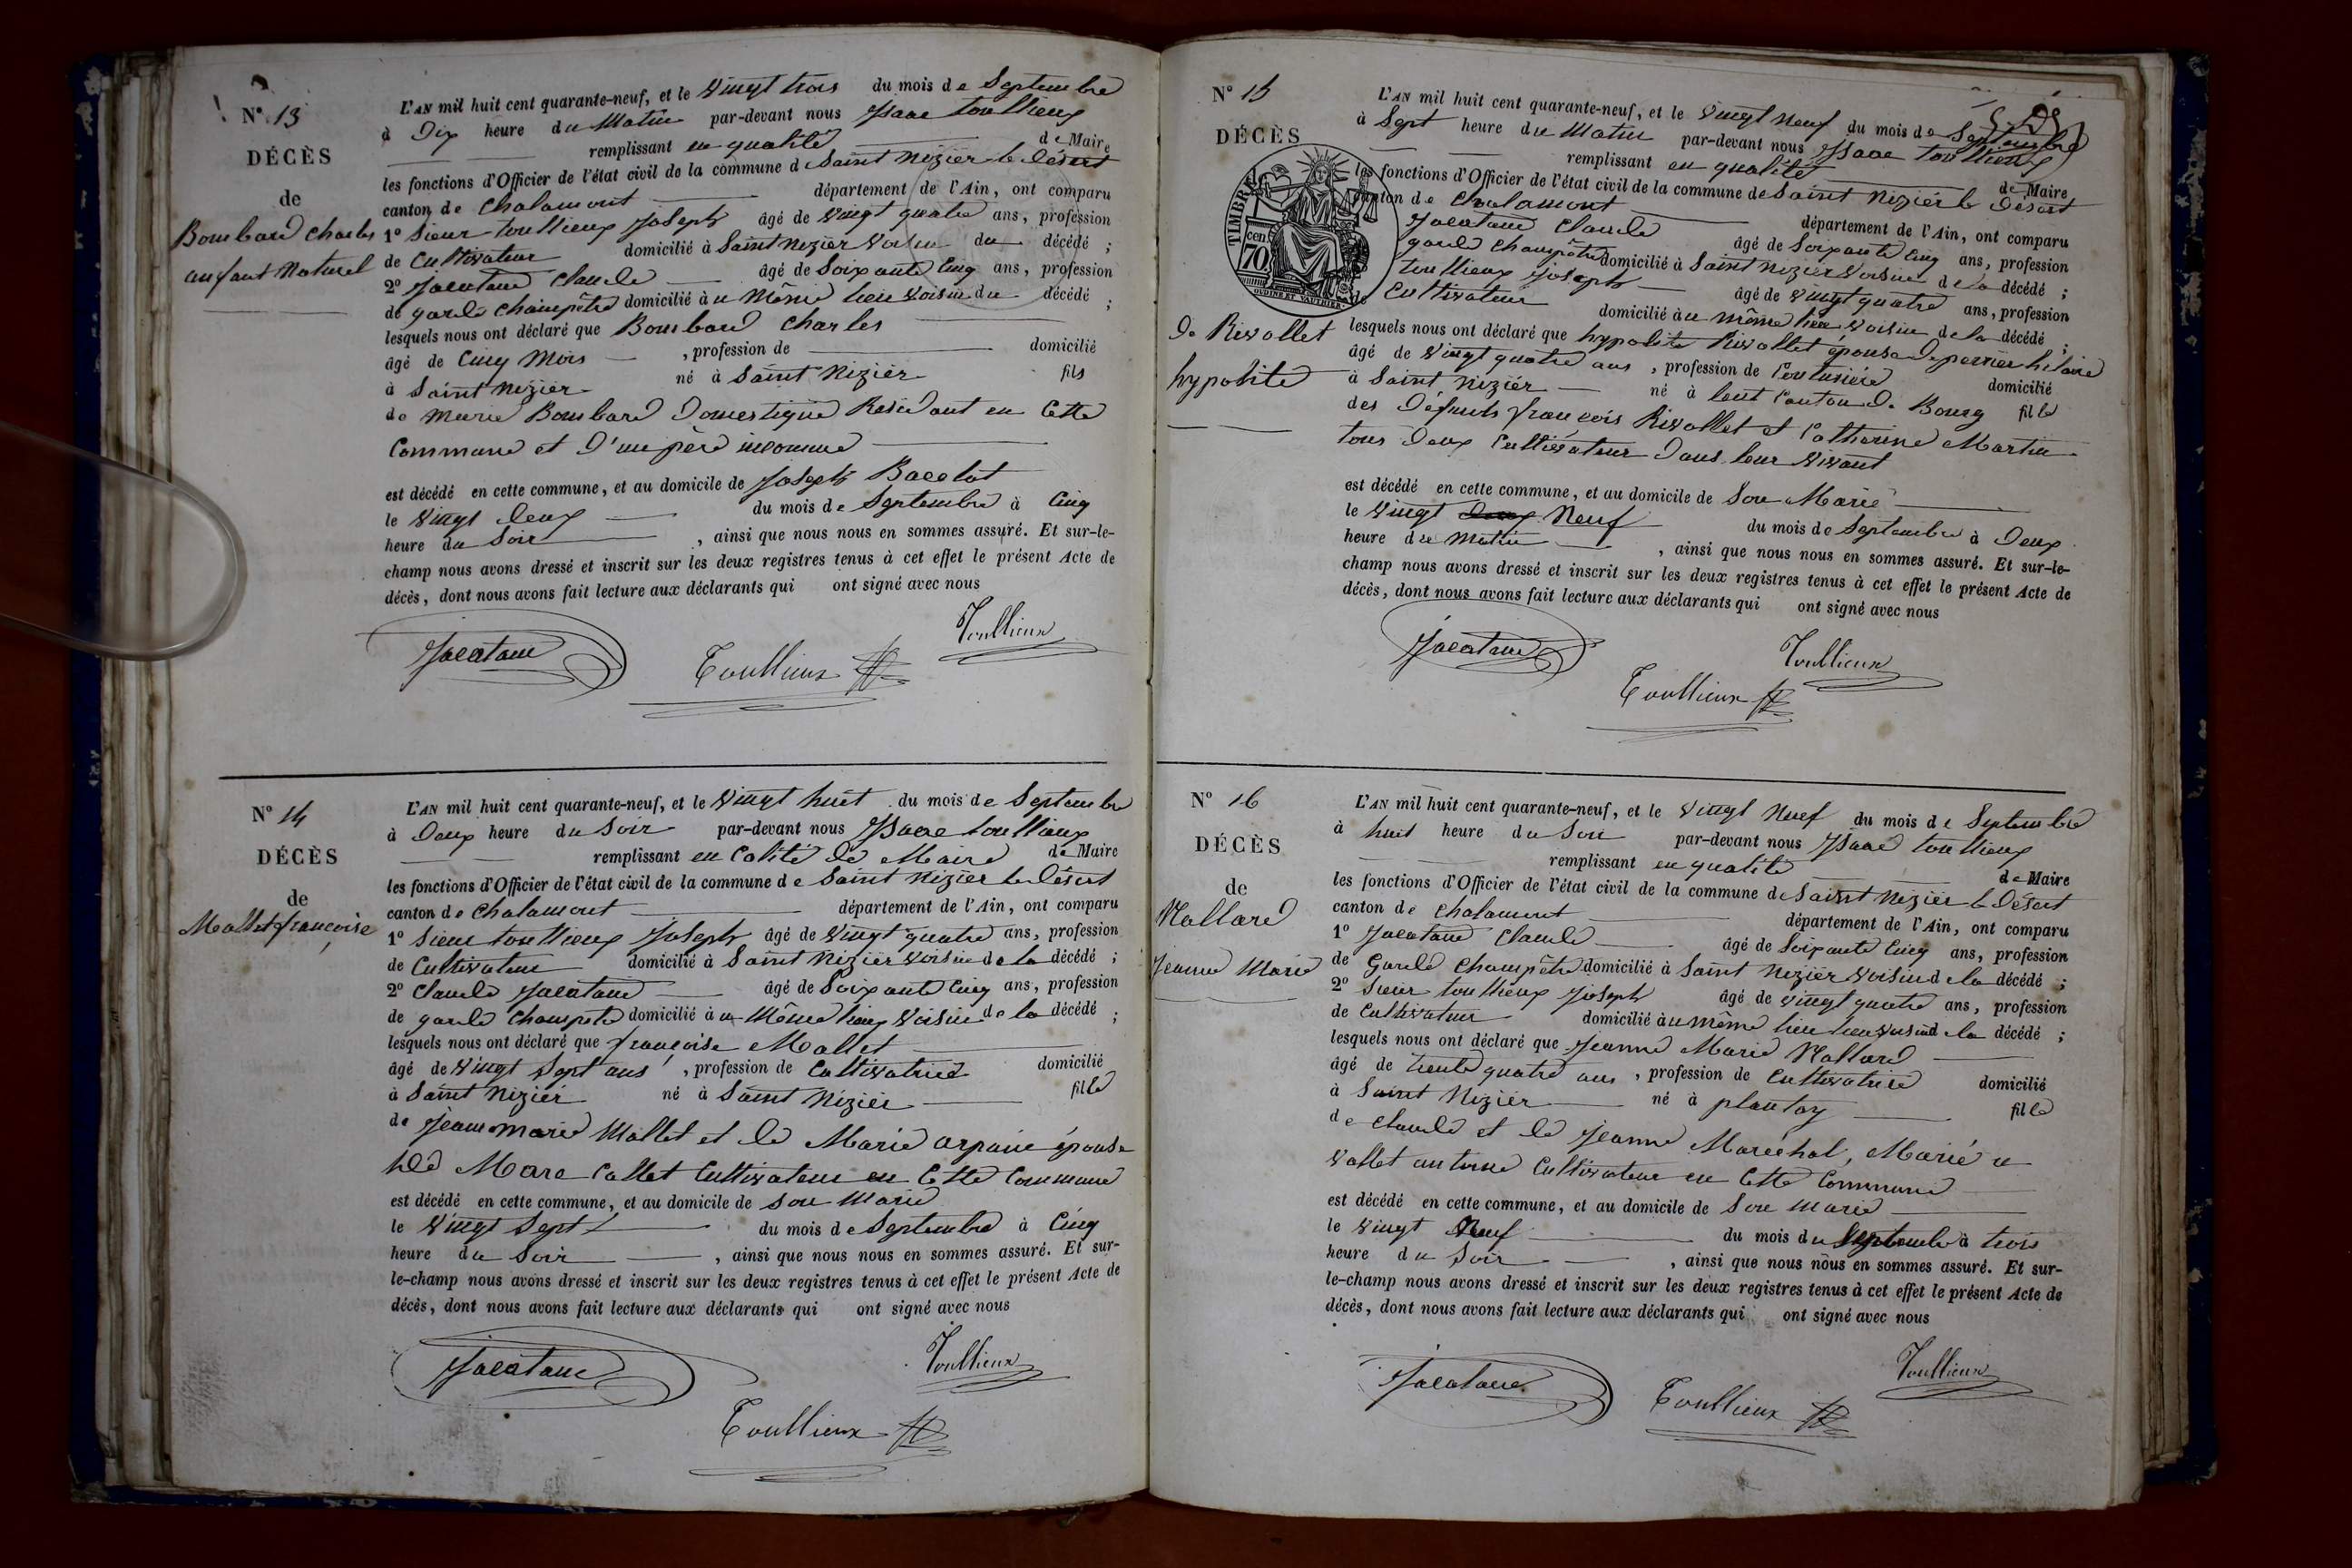 N° 13
DÉCÈS
de
Bombard Charles
anfant Naturel
L'AN mil huit cent quarante-neuf, et le Vingt trois du mois de Septembre
à Dix heure du Matin par-devant nous Isaac toullieux
remplissant en qualité de Maire
les fonctions d'Officier de l'état civil de la commune de Saint Nizier le Désert
canton de Chalamont département de l'Ain, ont comparu
1° Sieur toullieux Joseph âgé de Vingt quatre ans, profession
de Cultivateur domicilié à Saint Nizier Voisin du décédé ;
2° Jacatane Claude âgé de Soixante Cinq ans, profession
de garde champêtre domicilié àu Même lieu Voisin du décédé ;
lesquels nous ont déclaré que Bombard Charles
âgé de Cinq Mois , profession de domicilié
à Saint Nizier né à Saint Nizier fils
de Marie Bombard Domestique Residant en Cette
Commune et D'un père inconnue
est décédé en cette commune, et au domicile de Joseph Bacolot
le Vingt Deux du mois de Septembre à Cinq
heure du Soir , ainsi que nous nous en sommes assuré. Et sur-le-
champ nous avons dressé et inscrit sur les deux registres tenus à cet effet le présent Acte de
décès, dont nous avons fait lecture aux déclarants qui ont signé avec nous
Jacatane Toullieux Toullieux
N° 14
DÉCÈS
de
Mallet françoise
L'AN mil huit cent quarante-neuf, et le Vingt huit du mois de Septembre
à Deux heure du Soir par-devant nous Isaac toullieux
remplissant en Calité de Maire de Maire
les fonctions d'Officier de l'état civil de la commune de Saint Nizier le Désert
canton de Chalamont département de l'Ain, ont comparu
1° Sieur toullieux Joseph âgé de Vingt quatre ans, profession
de Cultivateur domicilié à Saint Nizier Voisin de la décédé ;
2° Claude Jacatane âgé de Soixante Cinq ans, profession
de garde Champete domicilié àu Même lieux Voisin de la décédé ;
lesquels nous ont déclaré que françoise Mallet
âgé de Vingt Sept ans , profession de Cultivatrice domicilié
à Saint Nizier né à Saint Nizier fille
de Jean marie Mallet et de Marie arpain épouse
de Marc Callet Cultivateur en Cette Commune
est décédé en cette commune, et au domicile de Son Marie
le Vingt Sept du mois de Septembre à Cinq
heure du Soir , ainsi que nous nous en sommes assuré. Et sur-
le-champ nous avons dressé et inscrit sur les deux registres tenus à cet effet le présent Acte de
décès, dont nous avons fait lecture aux déclarants qui ont signé avec nous
Jacatane Toullieux
Toullieux
N° 15
DÉCÈS
TIMBRE
cen
70
OUDINE ET VAUTHIER
de Rivollet
hypolite
L'AN mil huit cent quarante-neuf, et le Vingt Neuf du mois de Septembre
à Sept heure du Matin par-devant nous Isaac toullieux
remplissant en qualité de Maire
les fonctions d'Officier de l'état civil de la commune de Saint Nizier le Désert
canton de Chalamont département de l'Ain, ont comparu
Jacatane Claude âgé de Soixante Cinq ans, profession
garde Champêtre domicilié à Saint Nizier Voisin de la décédé ;
toullieux Joseph âgé de Vingt quatre ans, profession
de Cultivateur domicilié àu même lieu voisin de la décédé ;
lesquels nous ont déclaré que hypolite Rivollet épouse De perrier hilaire
âgé de Vingt quatre ans , profession de Couturière domicilié
à Saint Nizier né à lent Canton de Bourg fille
des Défunts françois Rivollet et Catherine Martin
tous Deux Cultivateur Dans leur Vivant
est décédé en cette commune, et au domicile de Son Marie
le Vingt Deux Neuf du mois de Septembre à Deux
heure du Matin , ainsi que nous nous en sommes assuré. Et sur-le-
champ nous avons dressé et inscrit sur les deux registres tenus à cet effet le présent Acte de
décès, dont nous avons fait lecture aux déclarants qui ont signé avec nous
Jacatane Toullieux
Toullieux
N° 16
DÉCÈS
de
Nallard
Jeanne Marie
L'AN mil huit cent quarante-neuf, et le Vingt Neuf du mois de Septembre
à huit heure du Soir par-devant nous Isaac toullieux
remplissant en qualité de Maire
les fonctions d'Officier de l'état civil de la commune de Saint Nizier le Désert
canton de Chalamont département de l'Ain, ont comparu
1° Jacatane Claude âgé de Soixante Cinq ans, profession
de Garde Champêtre domicilié à Saint Nizier Voisin de la décédé ;
2° Sieur toullieux Joseph âgé de vingt quatre ans, profession
de Cultivateur domicilié àu même lieu de la décédé ;
lesquels nous ont déclaré que Jeanne Marie Nallard
âgé de trente quatre ans , profession de Cultivatrice domicilié
à Saint Nizier né à plantay fille
de Claude et de Jeanne Maréchal, Marié a
Vallet antoine Cultivateur en Cette Commune
est décédé en cette commune, et au domicile de Son Marie
le Vingt Neuf du mois du Septembre à trois
heure du Soir , ainsi que nous nous en sommes assuré. Et sur-
le-champ nous avons dressé et inscrit sur les deux registres tenus à cet effet le présent Acte de
décès, dont nous avons fait lecture aux déclarants qui ont signé avec nous
Jacatane Toullieux Toullieux